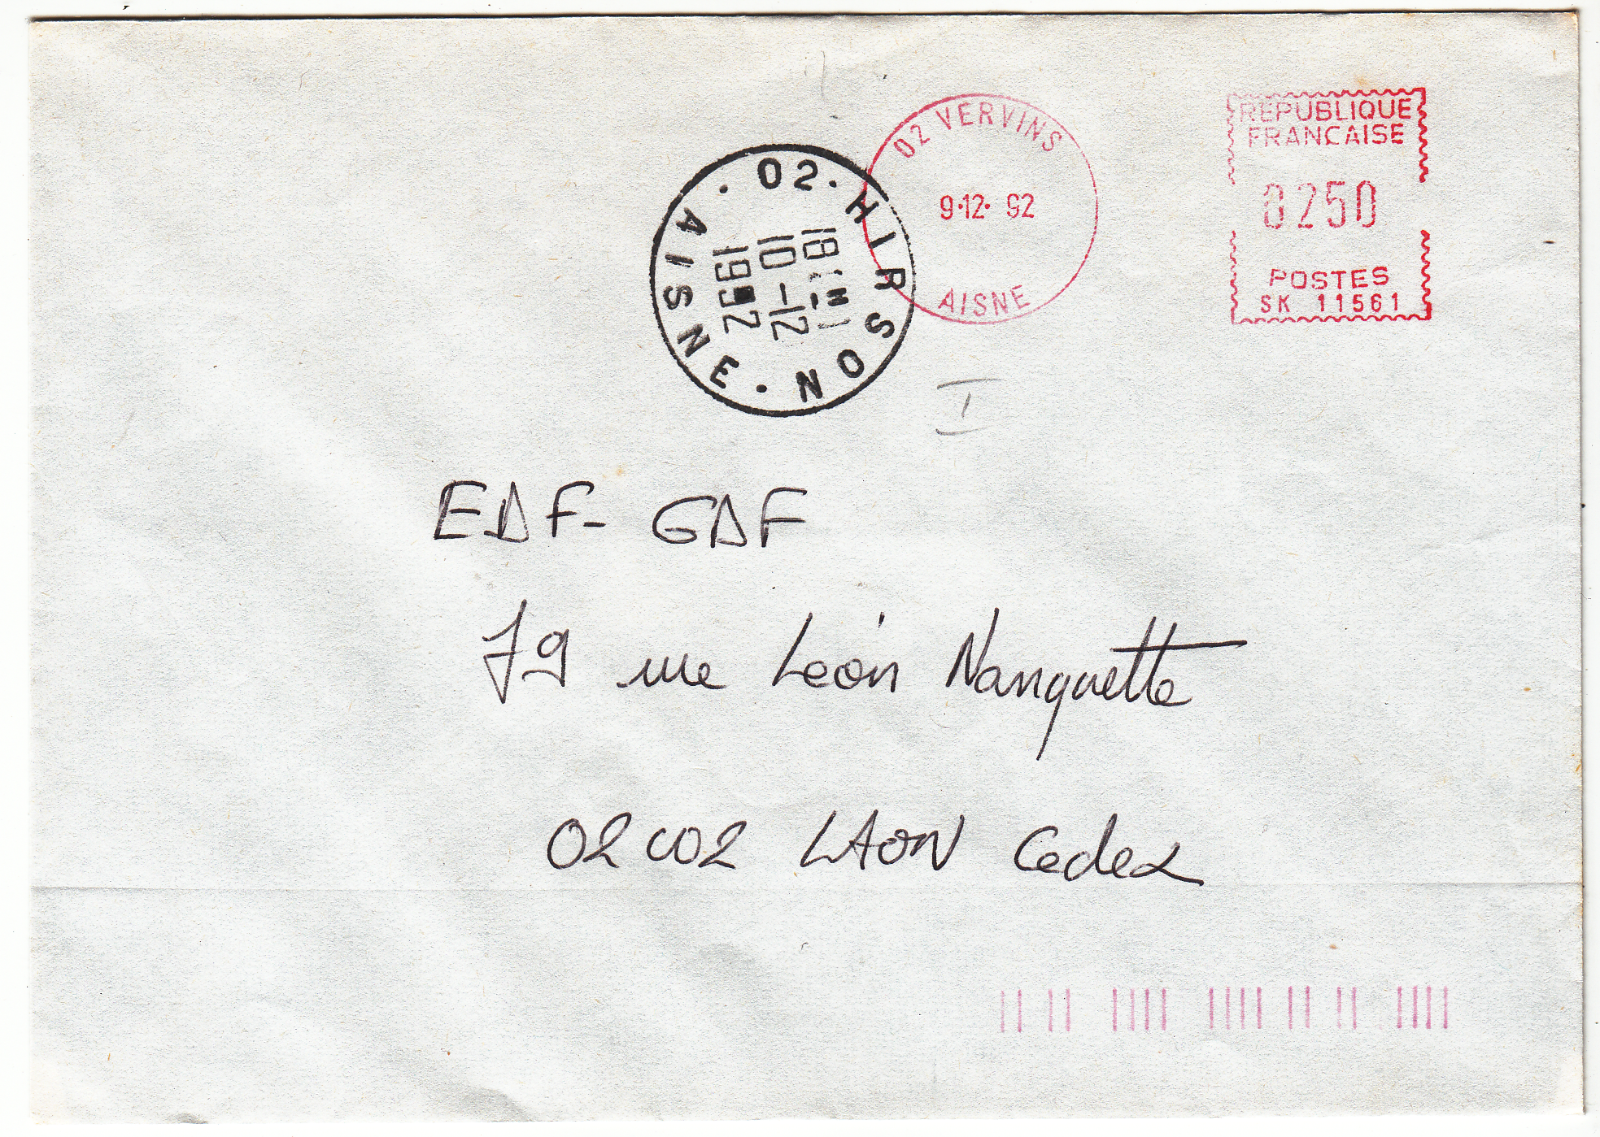 02 VERVINS
9·12· 92
AISNE
REPUBLIQUE
FRANCAISE
0250
POSTES
SK 11561
· 02 · HIRSON · AISNE
18 H
10-12
1992
I
EDF- GDF
79 rue Léon Nanquette
02002 LAON Cedex